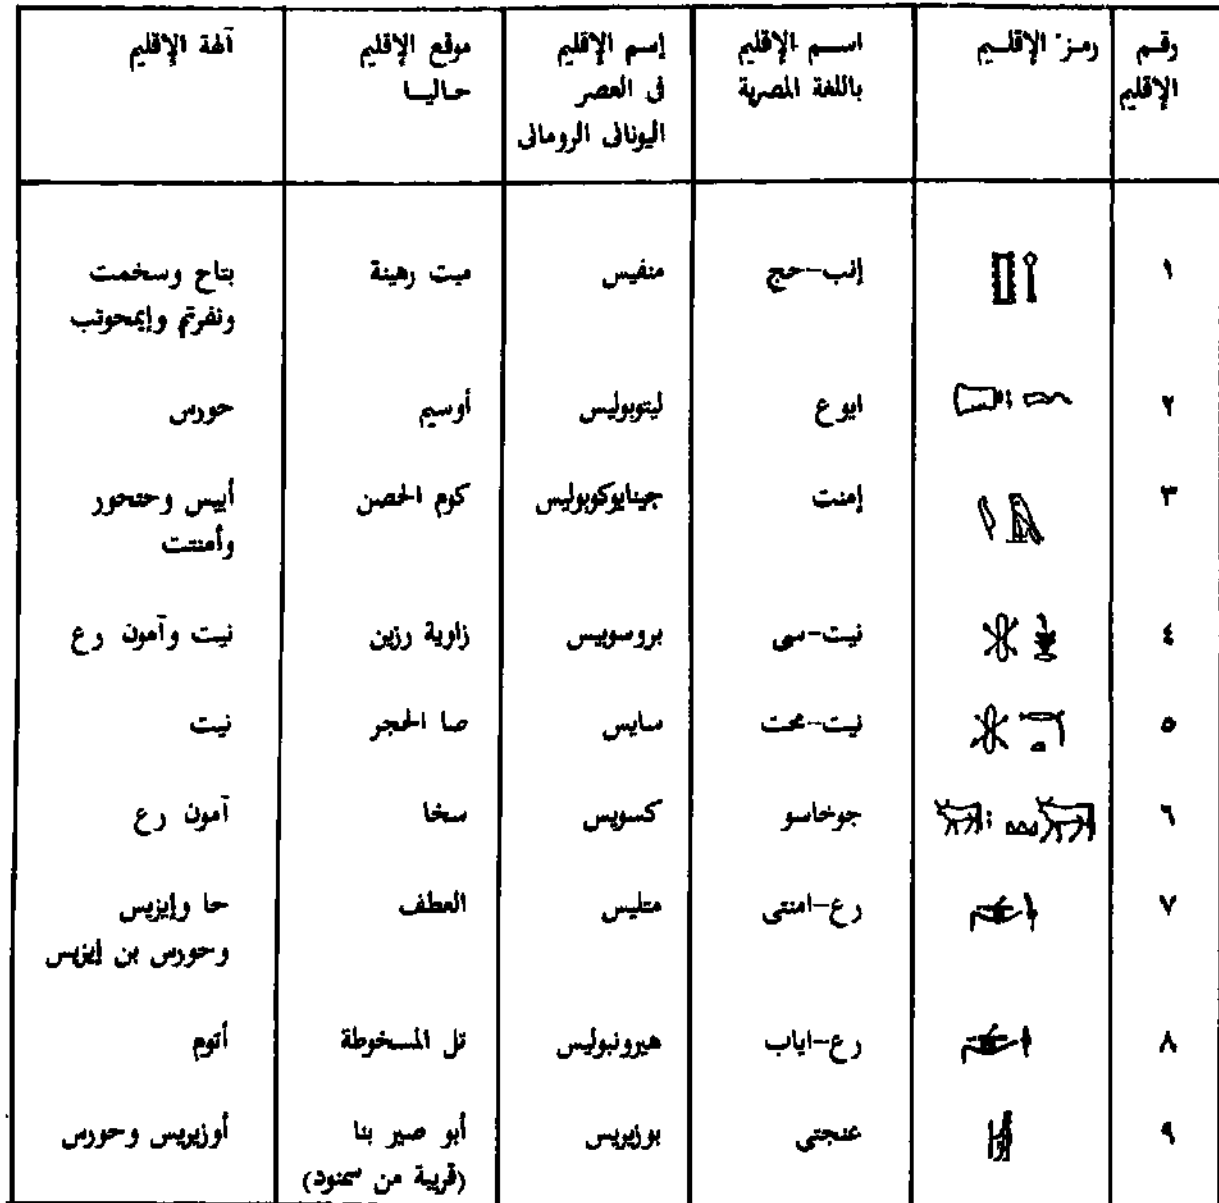 رقـم الإقليم | رمـز الإقلـيم | اسـم الإقليم باللغة المصرية | إسم الإقليم فى العصر اليونانى الرومانى | موقع الإقليم حـاليـا | آلهة الإقليم
١ | إنب-حج | منفيس | ميت رهينة | بتاح وسخمت ونفرتم وإيمحوتب
٢ | ايوع | ليتوبوليس | أوسيم | حورس
٣ | إمنت | جينايوكوبوليس | كوم الحصن | أبيس وحتحور وأمنتت
٤ | نيت-سى | بروسوبيس | زاوية رزين | نيت وآمون رع
٥ | نيت-محت | سايس | صا الحجر | نيت
٦ | جوخاسو | كسويس | سخا | آمون رع
٧ | رع-امنتى | متليس | العطف | حا وإيزيس وحورس بن إيزيس
٨ | رع-اياب | هيرونبوليس | تل المسخوطة | أتوم
٩ | عنجتى | بوزيريس | أبو صير بنا (قريبة من سمنود) | أوزيريس وحورس